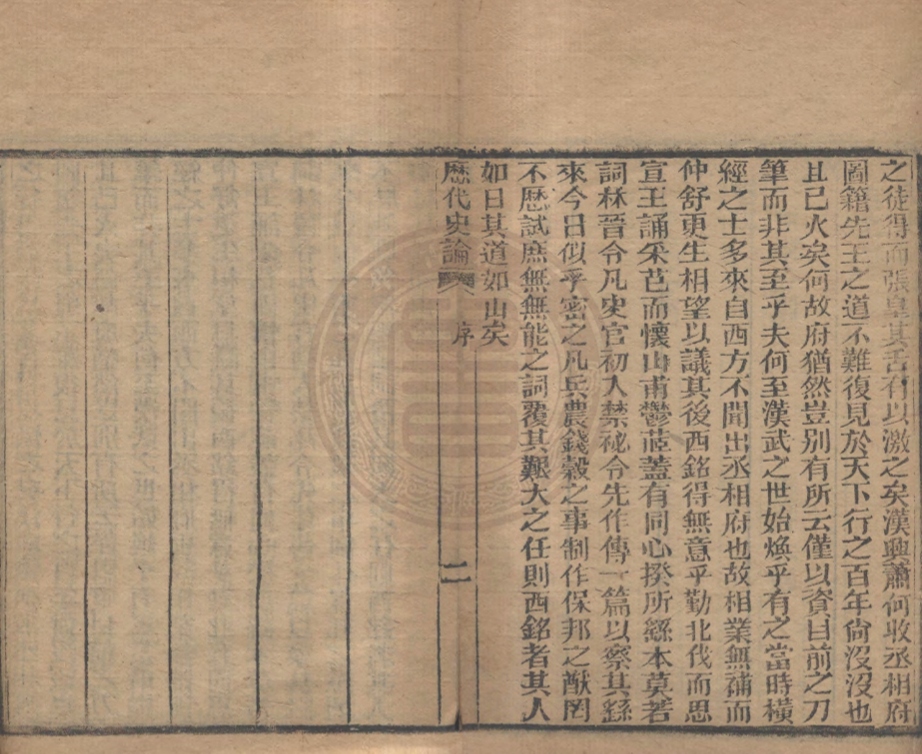 之徒得而張皇其舌有以激之矣漢興蕭何收丞相府
圖籍先王之道不難復見於天下行之百年尙沒沒也
且已火矣何故府猶然豈別有所云僅以資目前之刀
筆而非其至乎夫何至漢武之世始煥乎有之當時橫
經之士多來自西方不聞出丞相府也故相業無補而
仲舒更生相望以議其後西銘得無意乎勤北伐而思
宣王誦采芑而懷山甫鬱蓝蓋有同心揆所繇本莫若
詞林晉令凡史官初入禁祕令先作傳一篇以察其繇
來今日似乎密之凡兵農錢穀之事制作保邦之猷罔
不歷試庶無無能之詞覆其艱大之任則西銘者其人
如日其道如山矣
歷代史論 序 二